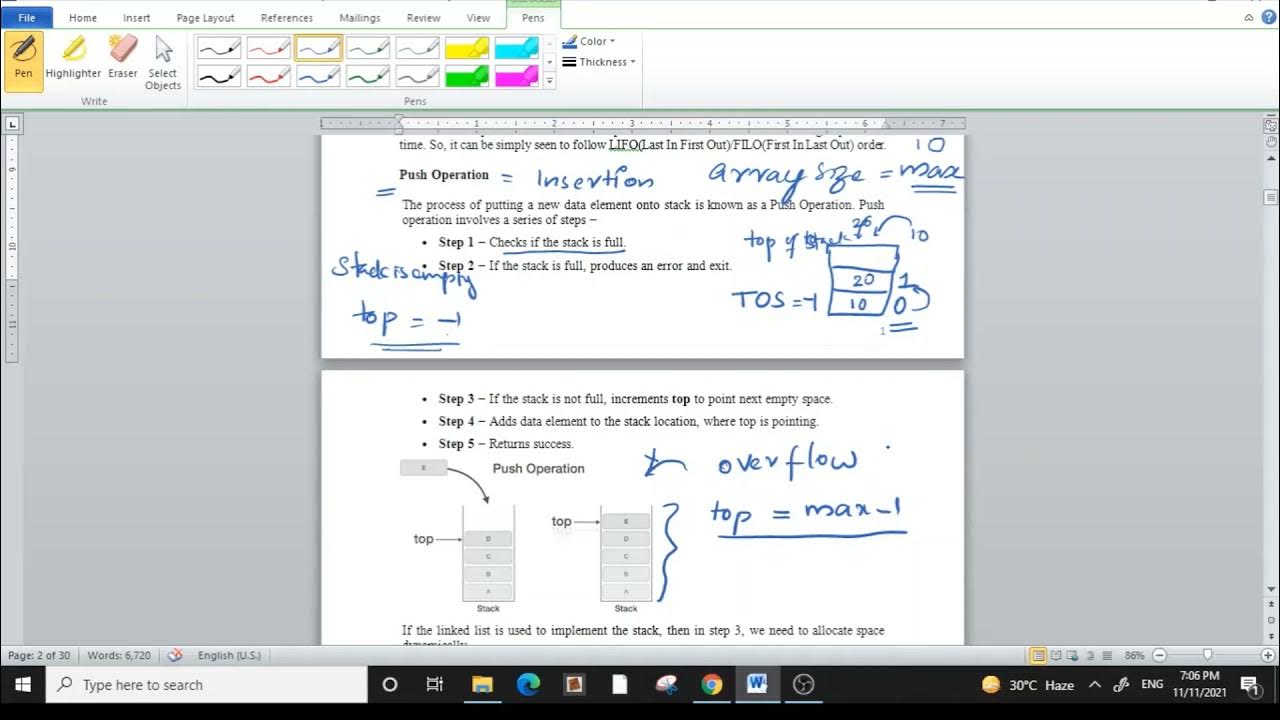 File Home Insert Page Layout References Mailings Review View Pens
Pen Highlighter Eraser Select Objects
Color
Thickness
Write Pens
1 2 3 4 5 6 7
time. So, it can be simply seen to follow LIFO(Last In First Out)/FILO(First In Last Out) order.
10
Push Operation = Insertion array size = max
The process of putting a new data element onto stack is known as a Push Operation. Push
operation involves a series of steps –
• Step 1 – Checks if the stack is full.
top of stack 10
• Step 2 – If the stack is full, produces an error and exit.
Stack is empty
20 1
TOS = -1 10 0
top = -1
1
• Step 3 – If the stack is not full, increments top to point next empty space.
• Step 4 – Adds data element to the stack location, where top is pointing.
• Step 5 – Returns success.
overflow
E Push Operation
top = max-1
top E
top D D
C C
B B
A A
Stack Stack
If the linked list is used to implement the stack, then in step 3, we need to allocate space
dynamically.
Page: 2 of 30 Words: 6,720 English (U.S.) 86%
Type here to search 30°C Haze ENG 7:06 PM
11/11/2021